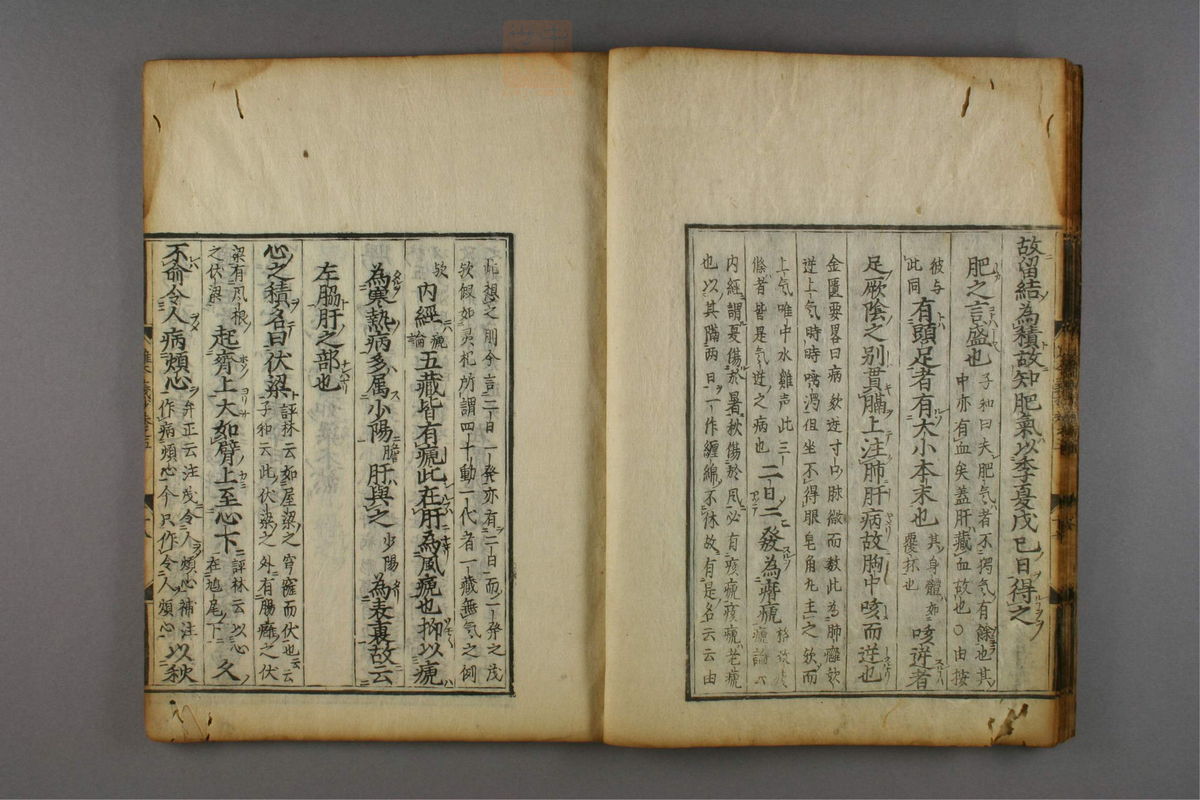 故留結為積故知肥氣以季夏戊巳日得之
肥之言盛也 子和曰夫肥气者不獨气有餘也其
中亦有血矣蓋肝藏血故也○由按
彼与
此同 有頭足者有大小本末也 其身體如
覆杯也 咳逆者
足厥陰之別貫膈上注肺肝病故胸中咳而逆也
金匱要畧曰病欬逆寸口脉微而数此為肺癰欬
逆上气時時唾濁但坐不得眠皂角丸主之欬而
上气唯中水雞声此三
條者皆是气逆之病也 二日一發為痎瘧
内經謂夏傷於暑秋傷於風必有痎瘧痎瘧老瘧
也以其隔兩日一作纏綿不休故有是名云云由
此想之則今言二日一発亦有二日而一発之
欤 内經瘧
論 五藏皆有瘧此在肝為風瘧也抑以瘧
為寒熱病多属少陽膽肝與之少陽為表裏故云
左脇肝之部也
心之積名曰伏梁 評林云如屋梁之穹窿而伏也云
子和云此伏梁之外有腸癰之伏
梁有風根
之伏梁 起齊上大如臂上至心下 評林云以心
在鳩尾下 久
不愈令人病煩心 弁正云注茂令人煩心補注
作病煩心今只作令人煩心 以秋